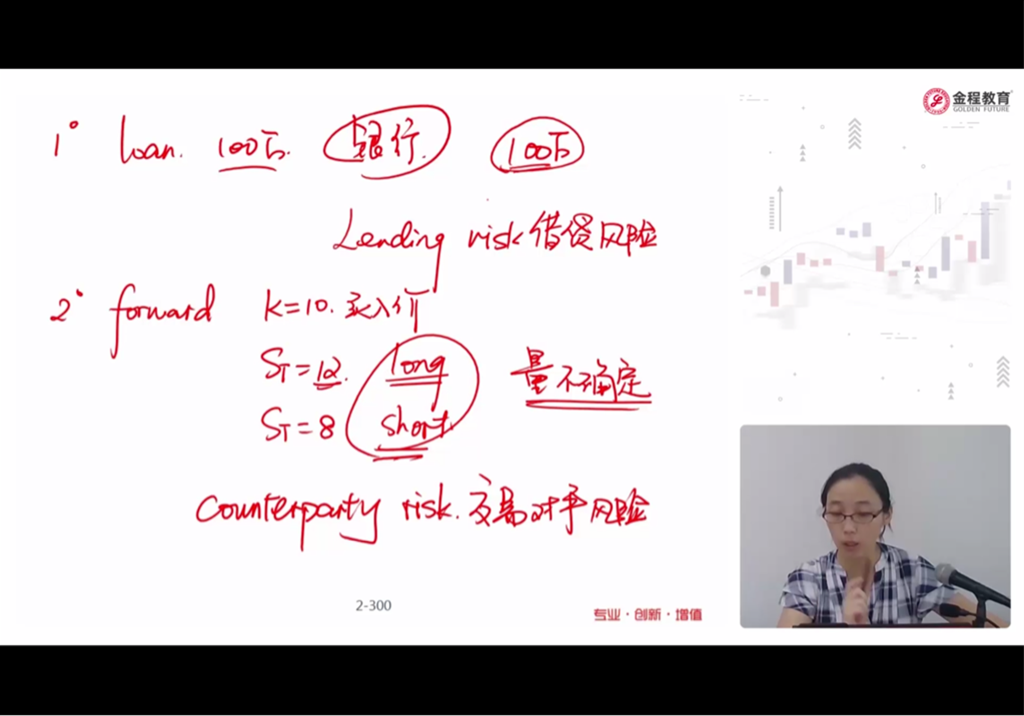 金程教育
GOLDEN FUTURE
1° loan. 100万. 银行. 100万
Lending risk 借贷风险
2° forward K=10. 买入价
ST=12. long 量不确定
ST=8 short.
counterparty risk. 交易对手风险
2-300
专业·创新·增值